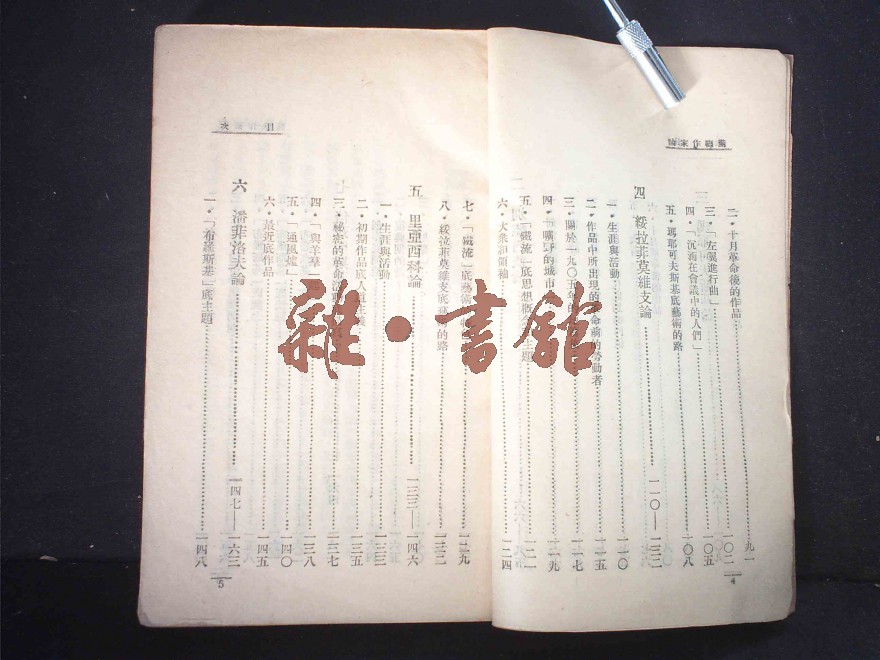 二・十月革命後的作品 一〇二
三・「左翼進行曲」 一〇五
四・「沉湎在會議中的人們」 一〇八
五・瑪耶可夫斯基底藝術的路
四 綏拉菲莫維支論 一一〇——一三二
一・生涯與活動 一一〇
二・作品中所出現的革命前的勞動者 一一五
三・關於一九〇五年的 一一七
四・曠野的城市 一一九
五・「鐵流」底思想 主題 一二一
六・大衆和領袖 一二四
4
目次
七・「鐵流」底藝術 一二九
八・綏拉菲莫維支底藝術的路 一三二
五 里亞西科論 一三三——一四六
一・生涯與活動 一三三
二・初期作品底人道主義 一三五
三・秘密的革命活動 一三七
四・「與羊羣」 一三八
五・「熔風爐」 一四〇
六・最近底作品 一四五
六 潘菲洛夫論 一四七——六三
一・「布羅斯基」底主題 一四八
5
雜・書舘